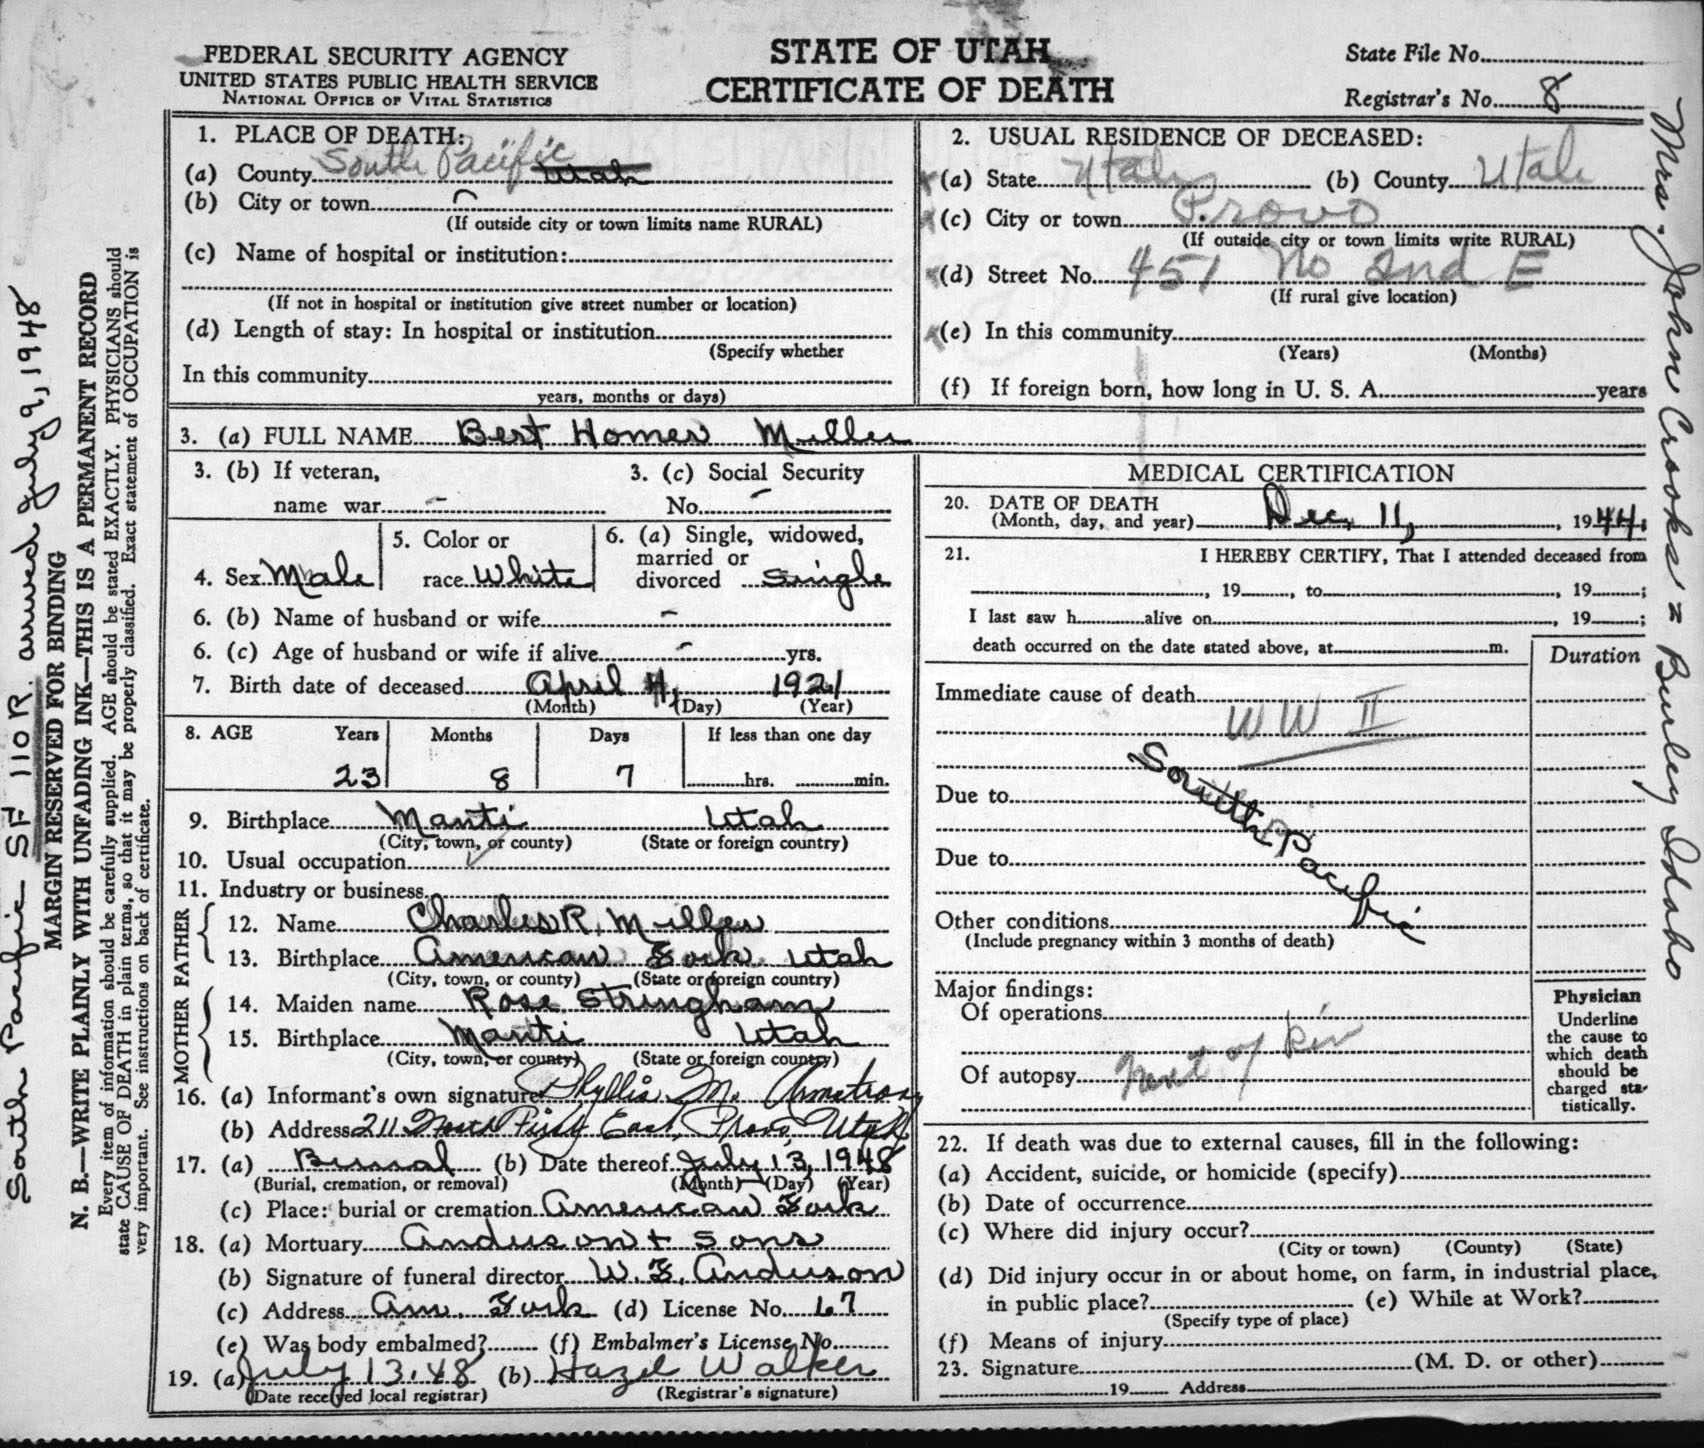 FEDERAL SECURITY AGENCY
UNITED STATES PUBLIC HEALTH SERVICE
NATIONAL OFFICE OF VITAL STATISTICS
STATE OF UTAH
CERTIFICATE OF DEATH
State File No.
Registrar's No. 8
1. PLACE OF DEATH:
(a) County South Pacific Utah
(b) City or town
(If outside city or town limits name RURAL)
(c) Name of hospital or institution:
(If not in hospital or institution give street number or location)
(d) Length of stay: In hospital or institution
(Specify whether
In this community
years, months or days)
2. USUAL RESIDENCE OF DECEASED:
(a) State Utah (b) County Utah
(c) City or town Provo
(If outside city or town limits write RURAL)
(d) Street No. 451 No 2nd E
(If rural give location)
(e) In this community
(Years) (Months)
(f) If foreign born, how long in U. S. A. years
3. (a) FULL NAME Bert Homer Miller
3. (b) If veteran,
name war -
3. (c) Social Security
No. -
4. Sex Male
5. Color or
race White
6. (a) Single, widowed,
married or
divorced Single
6. (b) Name of husband or wife -
6. (c) Age of husband or wife if alive - yrs.
7. Birth date of deceased April 4, 1921
(Month) (Day) (Year)
8. AGE Years Months Days If less than one day
23 8 7 hrs. min.
9. Birthplace Manti Utah
(City, town, or county) (State or foreign country)
10. Usual occupation
11. Industry or business
FATHER
12. Name Charles R. Miller
13. Birthplace American Fork Utah
(City, town, or county) (State or foreign country)
MOTHER
14. Maiden name Rose Stringham
15. Birthplace Manti Utah
(City, town, or county) (State or foreign country)
16. (a) Informant's own signature Phyllis M. Armstrong
(b) Address 211 North First East, Provo, Utah
17. (a) Burial (b) Date thereof July 13, 1948
(Burial, cremation, or removal) (Month) (Day) (Year)
(c) Place: burial or cremation American Fork
18. (a) Mortuary Anderson + Sons
(b) Signature of funeral director W. E. Anderson
(c) Address Am. Fork (d) License No. 67
(e) Was body embalmed? (f) Embalmer's License No.
19. (a) July 13.48 (b) Hazel Walker
(Date received local registrar) (Registrar's signature)
MEDICAL CERTIFICATION
20. DATE OF DEATH
(Month, day, and year) Dec, 11, , 1944;
21. I HEREBY CERTIFY, That I attended deceased from
, 19 , to , 19 ;
I last saw h alive on , 19 ;
death occurred on the date stated above, at m.
Duration
Immediate cause of death
WW II
South Pacific
Due to
Due to
Other conditions
(Include pregnancy within 3 months of death)
Major findings:
Of operations
Of autopsy
Next of kin
Physician
Underline
the cause to
which death
should be
charged sta-
tistically.
22. If death was due to external causes, fill in the following:
(a) Accident, suicide, or homicide (specify)
(b) Date of occurrence
(c) Where did injury occur?
(City or town) (County) (State)
(d) Did injury occur in or about home, on farm, in industrial place,
in public place? (e) While at Work?
(Specify type of place)
(f) Means of injury
23. Signature (M. D. or other)
19 Address
South Pacific - SF 110R. arrived July 9, 1948
MARGIN RESERVED FOR BINDING
N. B.—WRITE PLAINLY WITH UNFADING INK—THIS IS A PERMANENT RECORD
Every item of information should be carefully supplied. AGE should be stated EXACTLY. PHYSICIANS should
state CAUSE OF DEATH in plain terms, so that it may be properly classified. Exact statement of OCCUPATION is
very important. See instructions on back of certificate.
Mrs. John Crooks = Burley Idaho